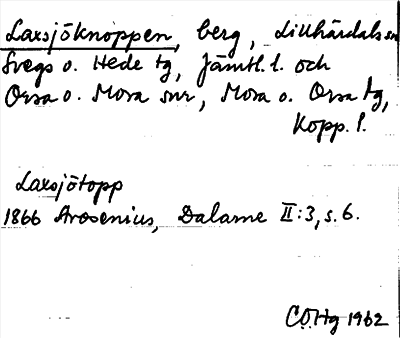 Laxsjöknoppen, berg, Lillhärdals sn
Svegs o. Hede tg, Jämtl. l. och
Orsa o. Mora snr, Mora o. Orsa tg,
Kopp. l.
Laxsjötopp
1866 Arosenius, Dalarne II:3, s. 6.
CÖHg 1962